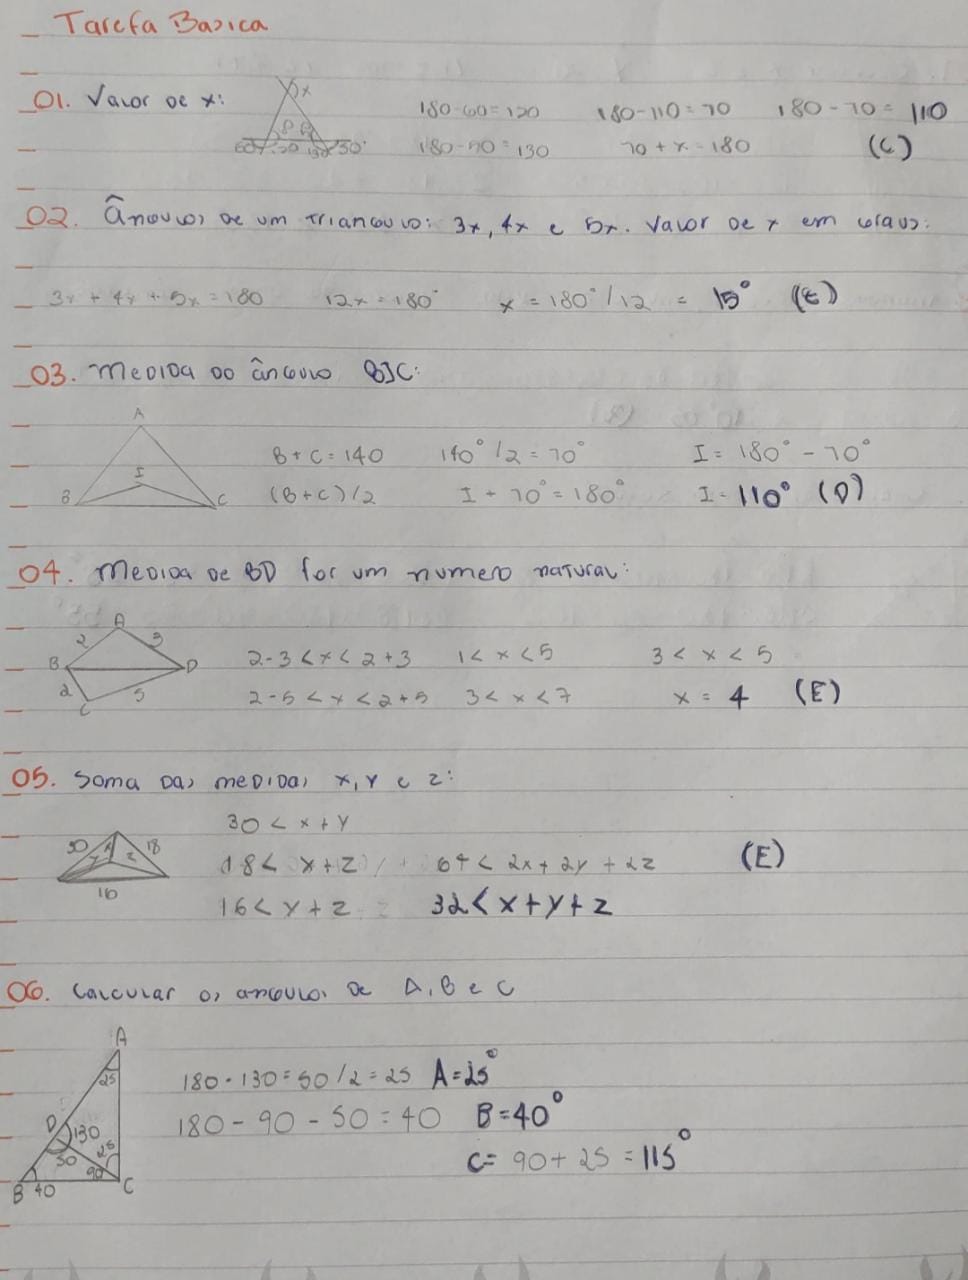 Tarefa Basica
01. Valor de x:
x
180-60=120 180-110=70 180-70= 110
180-50=130 70+x=180 (C)
02. Ângulos de um triangulo: 3x, 4x e 5x. Valor de x em graus:
3x + 4x + 5x = 180 12x = 180° x = 180°/12 = 15° (E)
03. Medida do ângulo BIC:
A
I
B C
B + C = 140 140°/2 = 70° I = 180° - 70°
(B+C)/2 I + 70° = 180° I = 110° (D)
04. Medida de BD for um numero natural:
A
2 3
B D
2 5
C
2-3 < x < 2+3 1 < x < 5 3 < x < 5
2-5 < x < 2+5 3 < x < 7 x = 4 (E)
05. Soma das medidas x, y e z:
30 < x + y
18 < x + z 64 < 2x + 2y + 2z (E)
16 < y + z 32 < x + y + z
18
z
16
06. Calcular os angulos de A, B e C
A
25
D
130
50 25
90
B 40 C
180-130=50/2=25 A=25°
180 - 90 - 50 = 40 B=40°
C= 90+25 = 115°